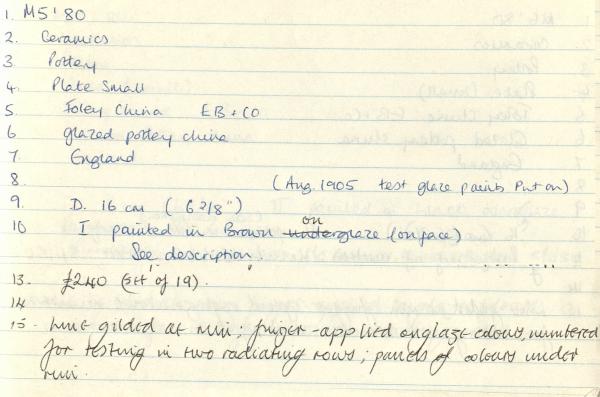 1. M5'80
2. Ceramics
3 Pottery
4. Plate Small
5 Foley China EB+CO
6 glazed pottery china
7 England
8. (Aug. 1905 test glaze paints Put on)
9. D. 16 cm (6 2/8")
10 I painted in Brown on underglaze (on face)
See description
13. £240 (set of 19).
14
15. gilded at rim; finger-applied onglaze colours, numbered
for testing in two radiating rows; panels of colours under
rim.